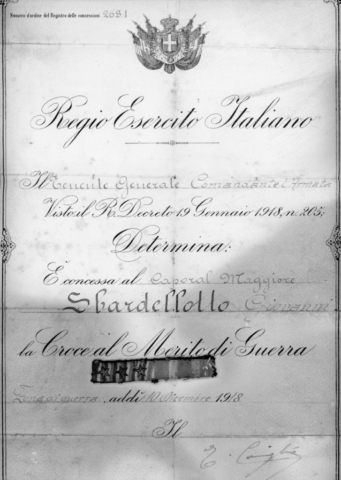 Numero d'ordine del Registro delle concessioni 2681
Regio Esercito Italiano
Il Tenente Generale Comandante l'Armata
Visto il R. Decreto 19 Gennaio 1918, n. 205;
Determina:
È concessa al Caporal Maggiore
Sbardellotto Giovanni
la Croce al Merito di Guerra
addì Dicembre 1918
Il